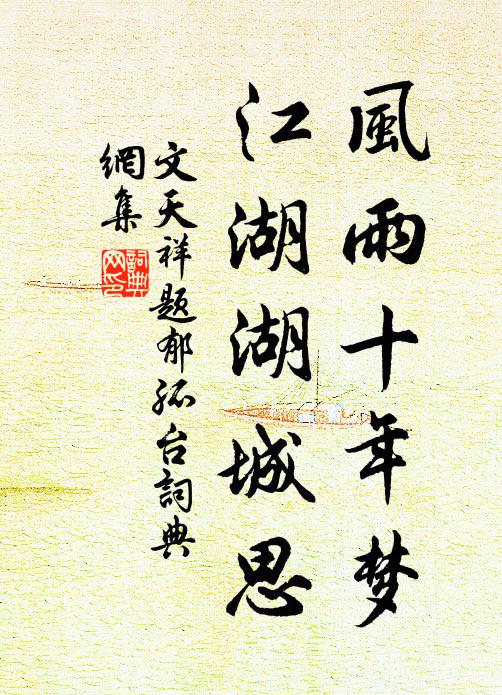 風雨十年梦
江湖湖城思
文天祥题郁孤台詞典
網集
詞典
网印